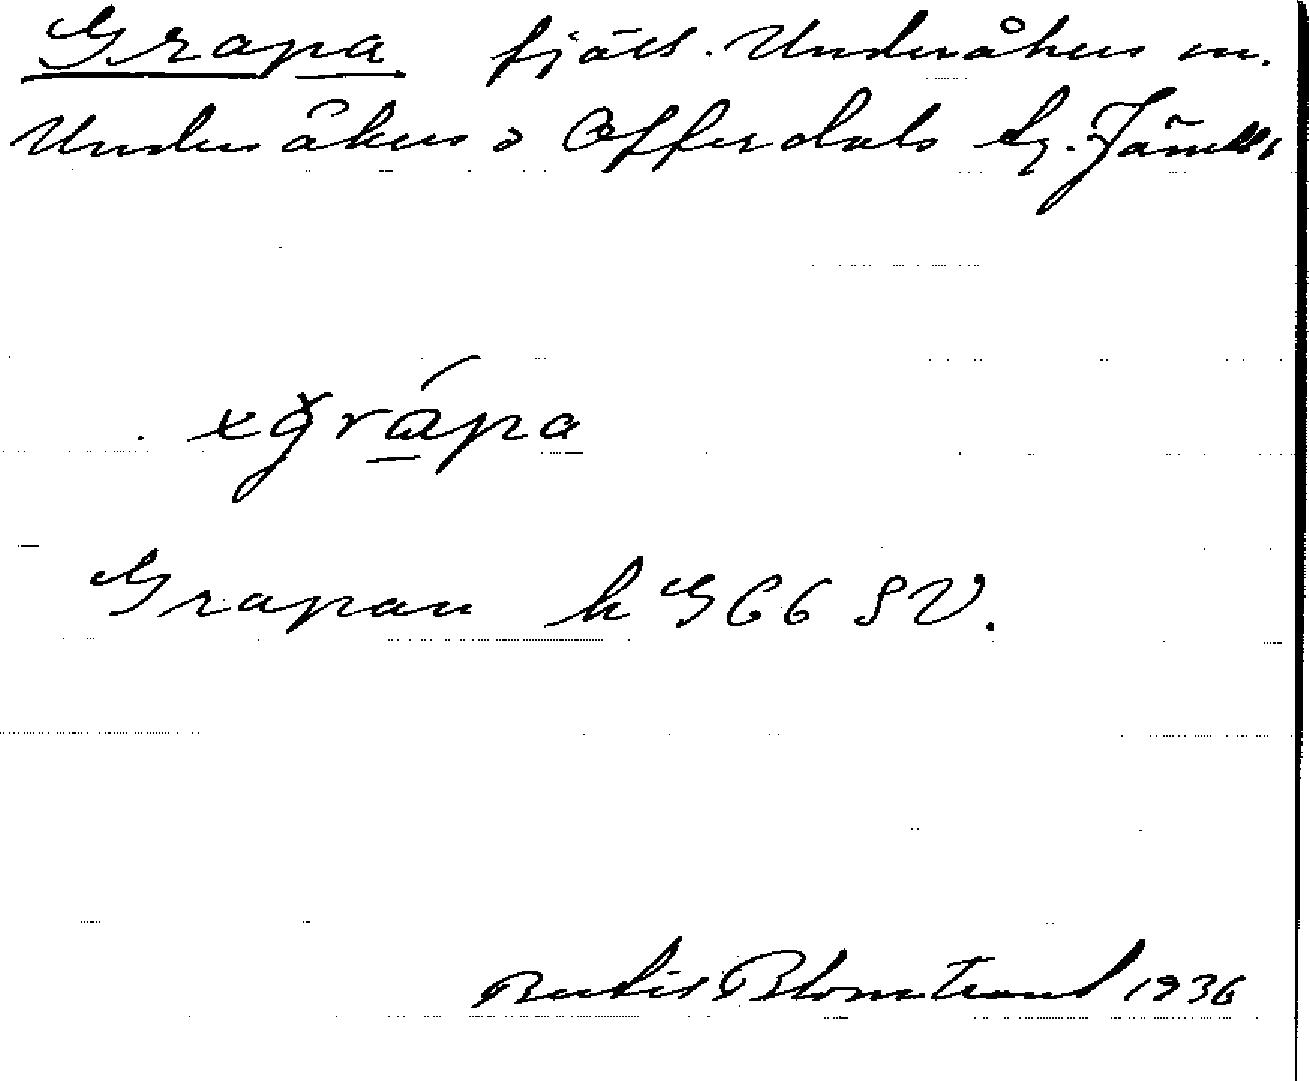 Grapa fjäll. Undersåkers sn.
Undersåkers o Offerdals tg. Jämtl.
×grápa
Grapan k G 66 SV.
Blomstrand 1936